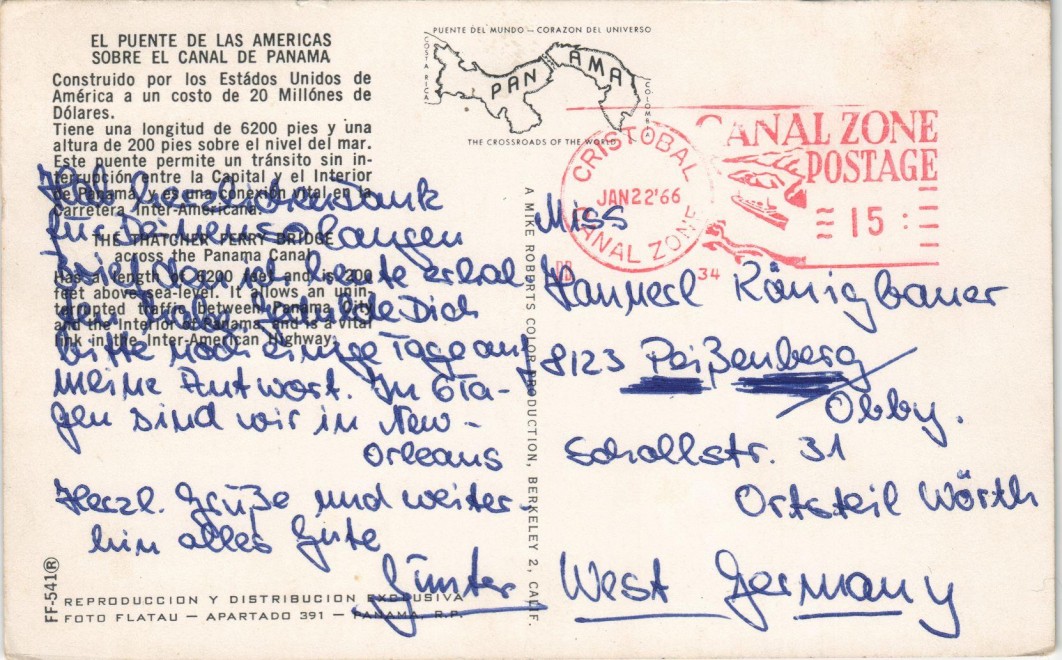 EL PUENTE DE LAS AMERICAS
SOBRE EL CANAL DE PANAMA
Construido por los Estádos Unidos de
América a un costo de 20 Millónes de
Dólares.
Tiene una longitud de 6200 pies y una
altura de 200 pies sobre el nivel del mar.
Este puente permite un tránsito sin in-
terrupción entre la Capital y el Interior
de Panamá, y es una conexión vital en la
Carretera Inter-Americana.
THE THATCHER FERRY BRIDGE
across the Panama Canal
Has a length of 6200 feet and is 200
feet above sea-level. It allows an unin-
terrupted traffic between Panama City
and the Interior of Panama, and is a vital
link in the Inter-American Highway.
Hab herzlichen Dank
für Deinen so langen
Brief den ich heute erhal
ten habe. Gedulde Dich
bitte noch einige Tage auf
meine Antwort. In 6 Ta-
gen sind wir in New-
Orleans
Herzl. Grüße und weiter-
hin alles Gute
Günter
FF-541®
REPRODUCCION Y DISTRIBUCION EXCLUSIVA
FOTO FLATAU — APARTADO 391 — PANAMA, R.P.
PUENTE DEL MUNDO — CORAZON DEL UNIVERSO
COSTA RICA
PANAMA
COLOMBIA
THE CROSSROADS OF THE WORLD
A MIKE ROBERTS COLOR PRODUCTION, BERKELEY 2, CALIF.
CRISTOBAL
JAN22'66
CANAL ZONE
CANAL ZONE
POSTAGE
15
34
Miss
Hannerl Königbauer
8123 Peißenberg
Obby.
Schollstr. 31
Ortsteil Wörth
West Germany